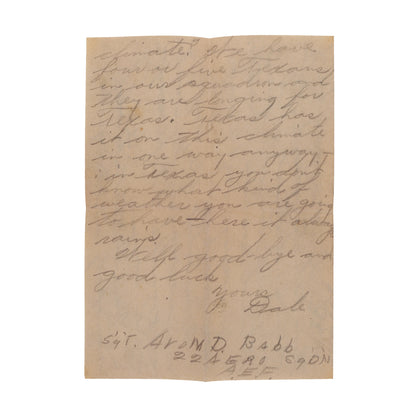 climate." We have
four or five Texans
in our squadron and
they are longing for
Texas. Texas has
it on this climate
in one way anyway—
in Texas you don't
know what kind of
weather you are going
to have—here it always
rains.
Well good-bye and
good luck
Yours
Dale
Sgt. Avon D. Babb
22 AERO SQDN
A.E.F.